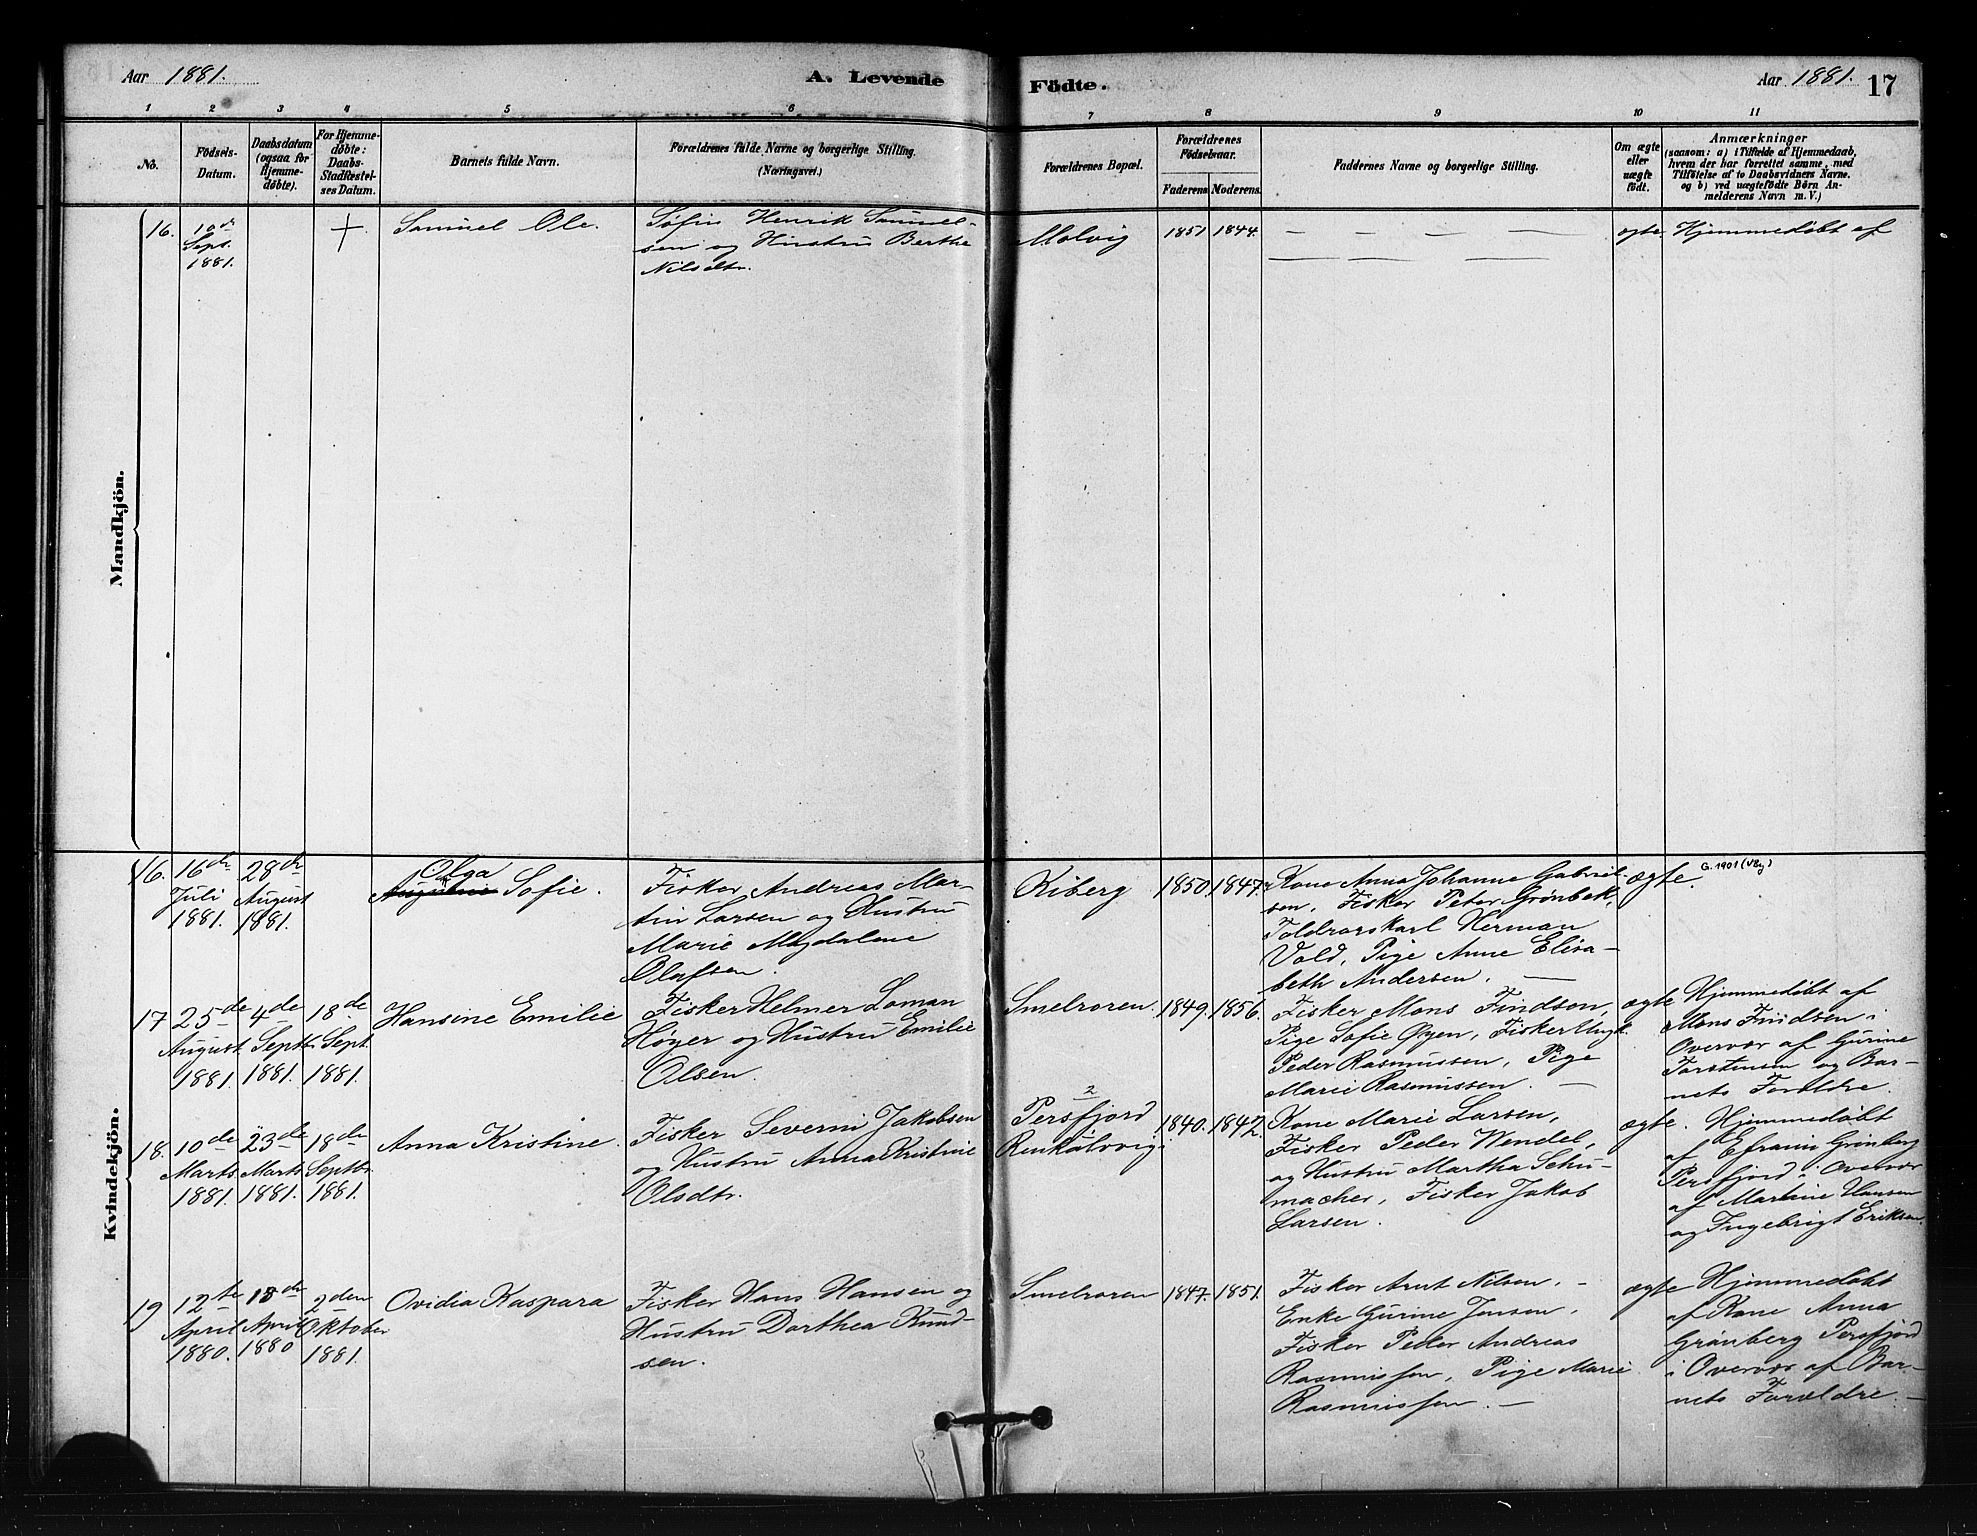 Aar 1881.
A. Levende Födte.
Aar 1881. 17
1 2 3 4 5 6 7 8 9 10 11
No.
Födsels-
Datum.
Daabsdatum
(ogsaa for
Hjemme-
døbte).
For Hjemme-
døbte:
Daabs-
Stadfæstel-
ses Datum.
Barnets fulde Navn.
Forældrenes fulde Navne og borgerlige Stilling.
(Næringsvei.)
Forældrenes Bopæl.
Forældrenes
Födselsaar.
Faderens Moderens
Faddernes Navne og borgerlige Stilling.
Om ægte
eller
uægte
født.
Anmærkninger
(saasom: a) i Tilfælde af Hjemmedaab,
hvem der har forrettet samme, med
Tilföielse af to Daabsvidners Navne,
og b) ved uægtefödte Børn An-
melderens Navn m. V.)
Mandkjön.
16.
10de
Sept.
1881.
+
Samuel Ole.
Søfin Henrik Samuel-
sen og Hustru Berthe
Nilsdtr.
Molvig
1851 1844.
— — — —
— — —
ægte.
Hjemmedøbt af
Kvindekjön.
16.
16de
Juli
1881.
28de
August
1881.
Olga
Augustine Sofie.
Fisker Andreas Mar-
tin Larsen og Hustru
Marie Magdalene
Olafsen.
Kiberg
1850 1847.
Kone Anna Johanne Gabriel-
sen, Fisker Peter Grønbek,
Toldrorskarl Herman
Vold, Pige Anne Elisa-
beth Andersen. —
ægte.
G. 1901 (VBy)
17
25de
August.
1881.
4de
Septb.
1881.
18de
Sept.
1881.
Hansine Emilie
Fisker Helmer Loman
Høyer og Hustru Emilie
Olsen.
Smelroren.
1849. 1856.
Fisker Mons Findsen,
Pige Sofie Øyen, Fisker Ungk.
Peder Rasmussen, Pige
Marie Rasmussen. —
ægte
Hjemmedøbt af
Mons Findsen i
Overvær af Gurine
Torstensen og Bar-
nets Forældre.
18.
10de
Marts
1881.
23de
Marts
1881.
18de
Septbr.
1881.
Anna Kristine.
Fisker Severin Jakobsen
og Hustru Anna Kristine
Olsdtr.
2
Persfjord
Renkalvvig.
1840. 1842.
Kone Marie Larsen,
Fisker Peder Wendel,
og Hustru Martha Schu-
macher, Fisker Jakob
Larsen.
ægte.
Hjemmedøbt
af Efraim Grønberg
Persfjord i Overvær
af Martine Hansen
og Ingebrigt Eriksen.
19
12te
April
1880.
18de
April
1880
2den
Oktober
1881.
Ovidia Kaspara
Fisker Hans Hansen og
Hustru Dorthea Knud-
sen.
Smelroren
1847. 1851.
Fisker Arnt Nilsen, —
Enke Gurine Jensen,
Fisker Peder Andreas
Rasmussen, Pige Marie
Rasmussen. —
ægte
Hjemmedøbt
af Kone Anna
Grønberg Persfjord
i Overvær af Bar-
nets Forældre. —